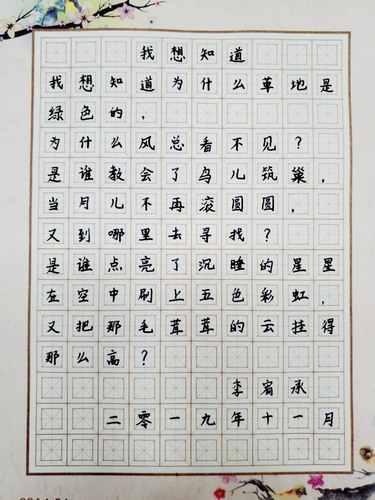 我想知道
我想知道为什么草地是
绿色的，
为什么风总看不见？
是谁教会了鸟儿筑巢，
当月儿不再滚圆圆，
又到哪里去寻找？
是谁点亮了沉睡的星星
在空中刷上五色彩虹，
又把那毛茸茸的云挂得
那么高？
李宥承
二零一九年十一月